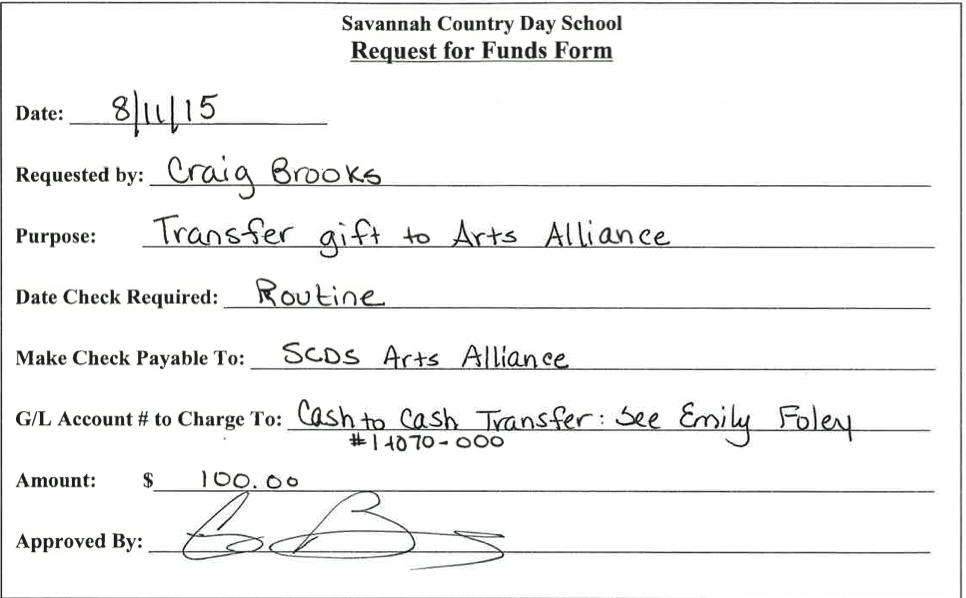 Savannah Country Day School
Request for Funds Form
Date: 8/11/15
Requested by: Craig Brooks
Purpose: Transfer gift to Arts Alliance
Date Check Required: Routine
Make Check Payable To: SCDS Arts Alliance
G/L Account # to Charge To: Cash to Cash Transfer: See Emily Foley
#11070-000
Amount: $ 100.00
Approved By: